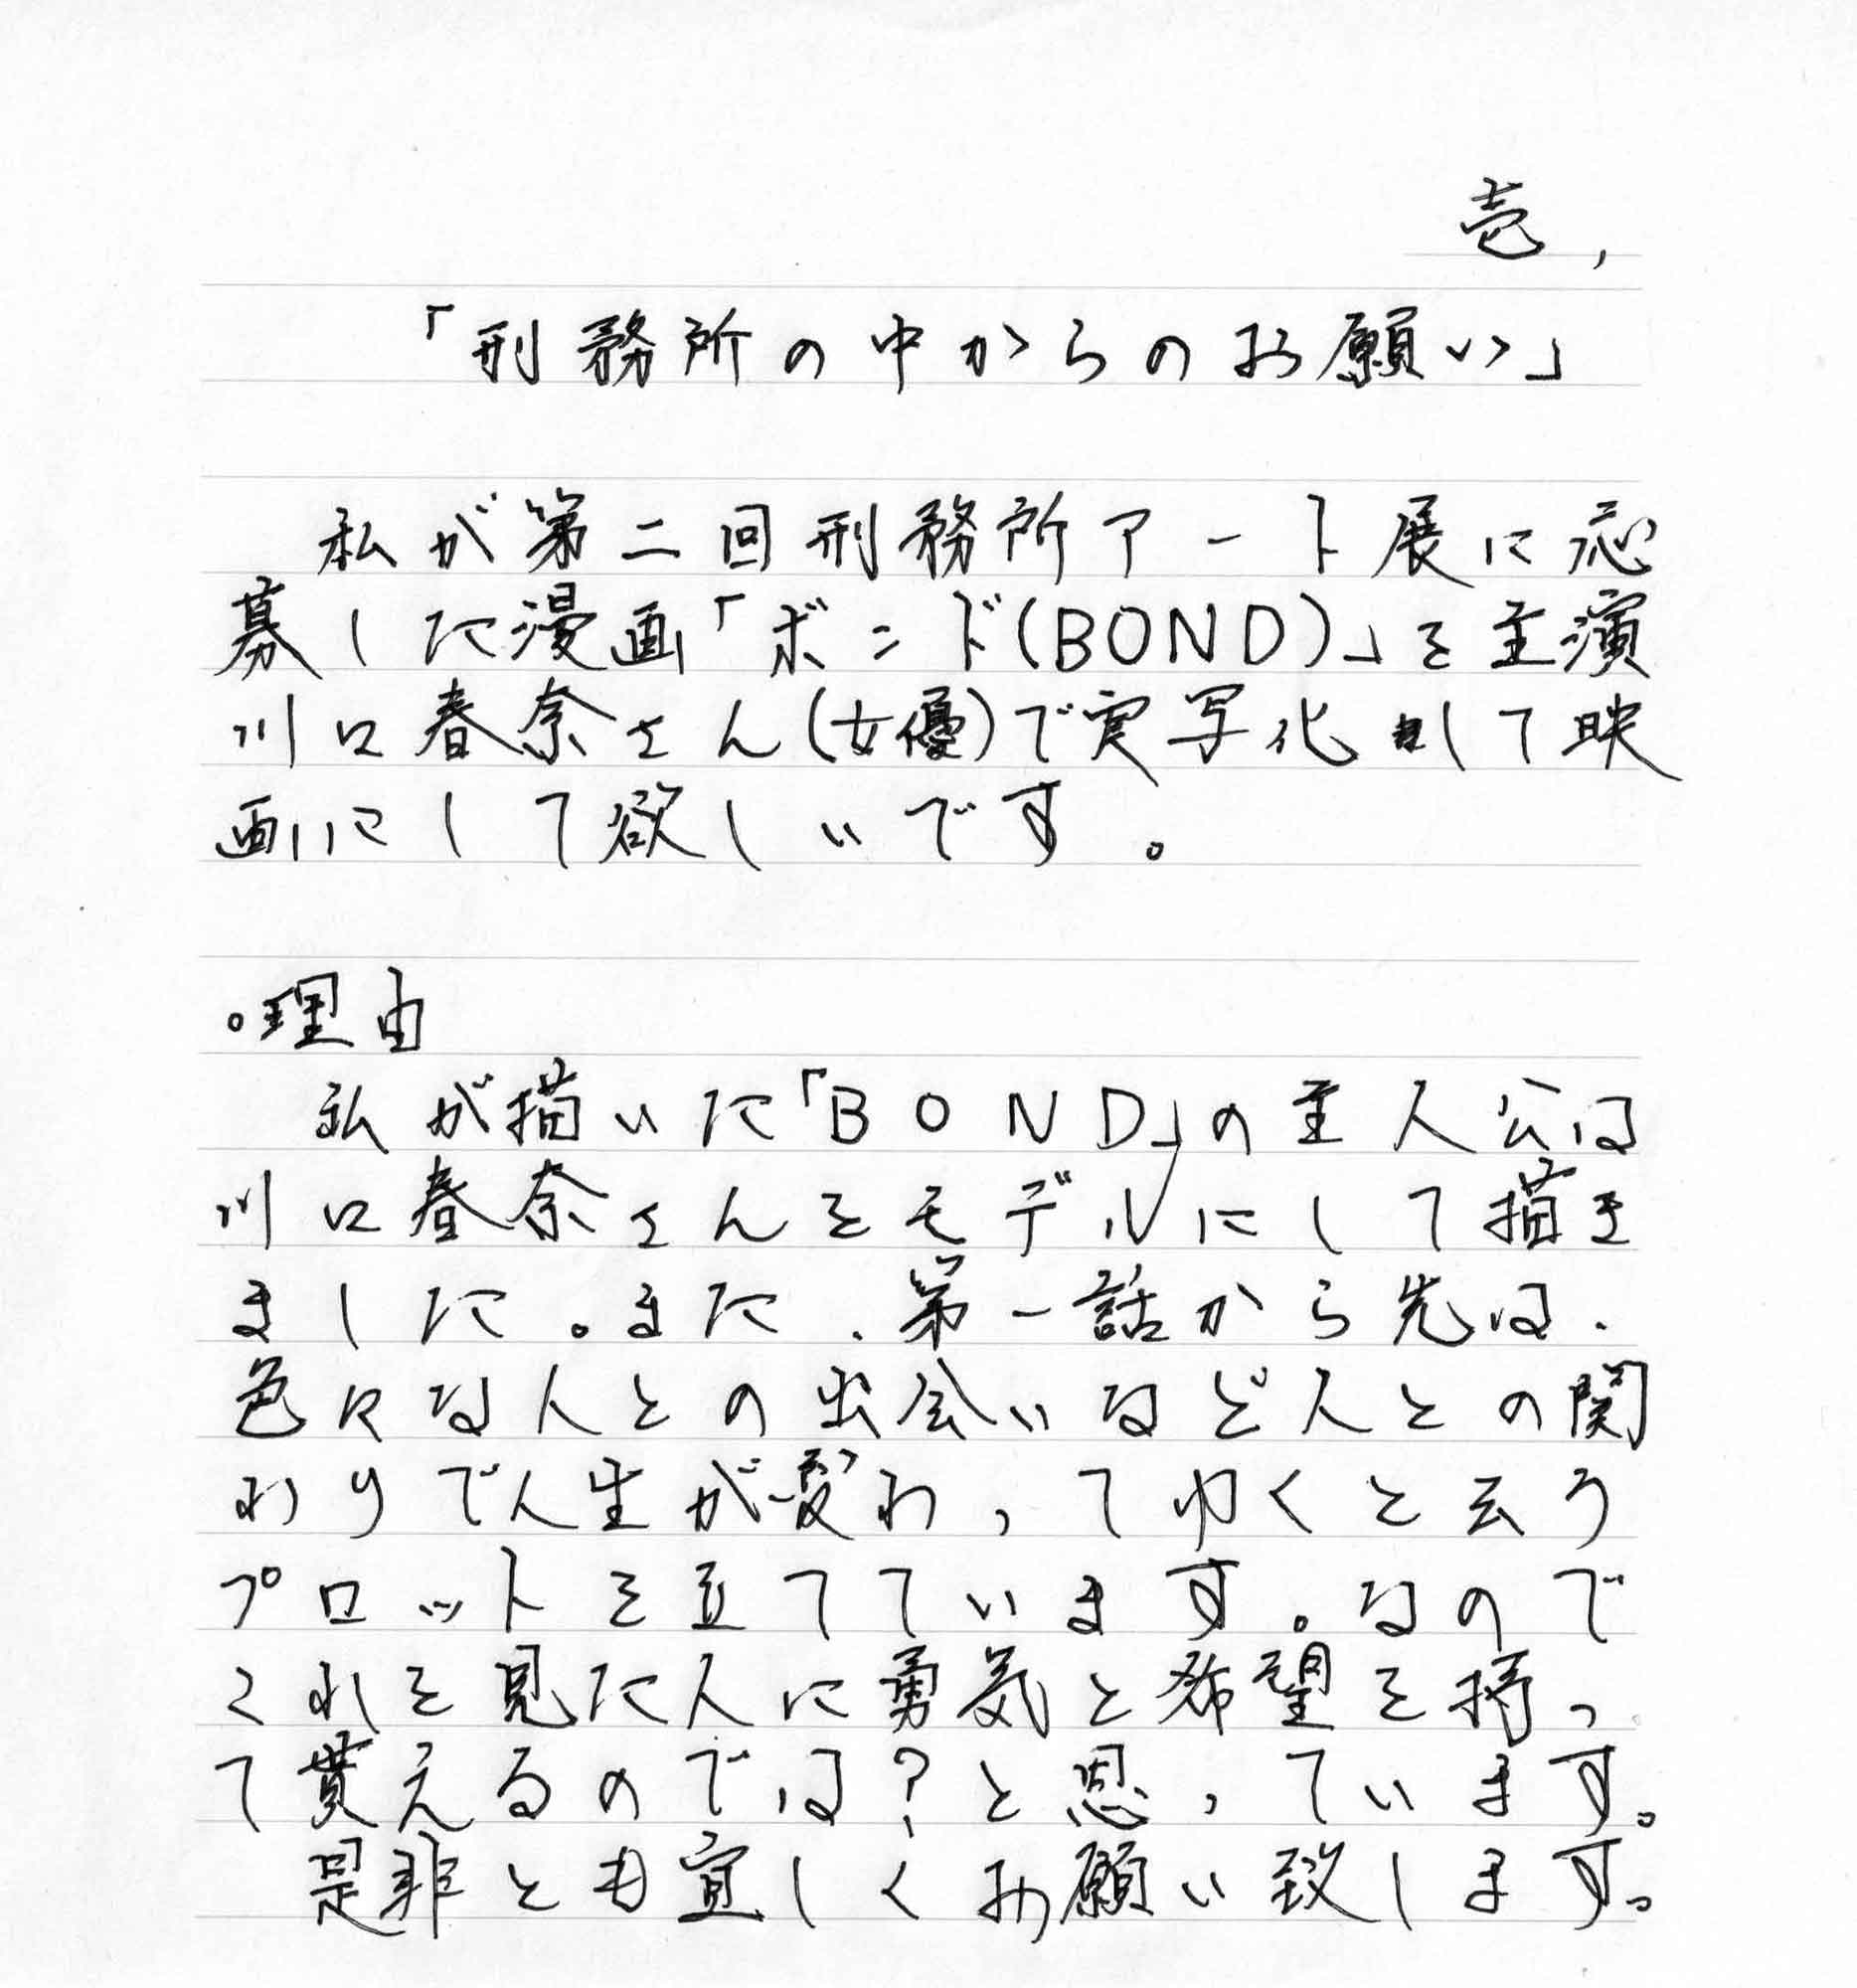 壱,
「刑務所の中からのお願い」
私が第二回刑務所アート展に応
募した漫画「ボンド(BOND)」を主演
川口春奈さん(女優)で実写化して映
画にして欲しいです。
。理由
私が描いた「BOND」の主人公は
川口春奈さんをモデルにして描き
ました。また、第一話から先は、
色々な人との出会いなど人との関
わりで人生が変わってゆくと云う
プロットを立てています。なので
これを見た人に勇気と希望を持っ
て貰えるのでは?と思っています。
是非とも宜しくお願い致します。